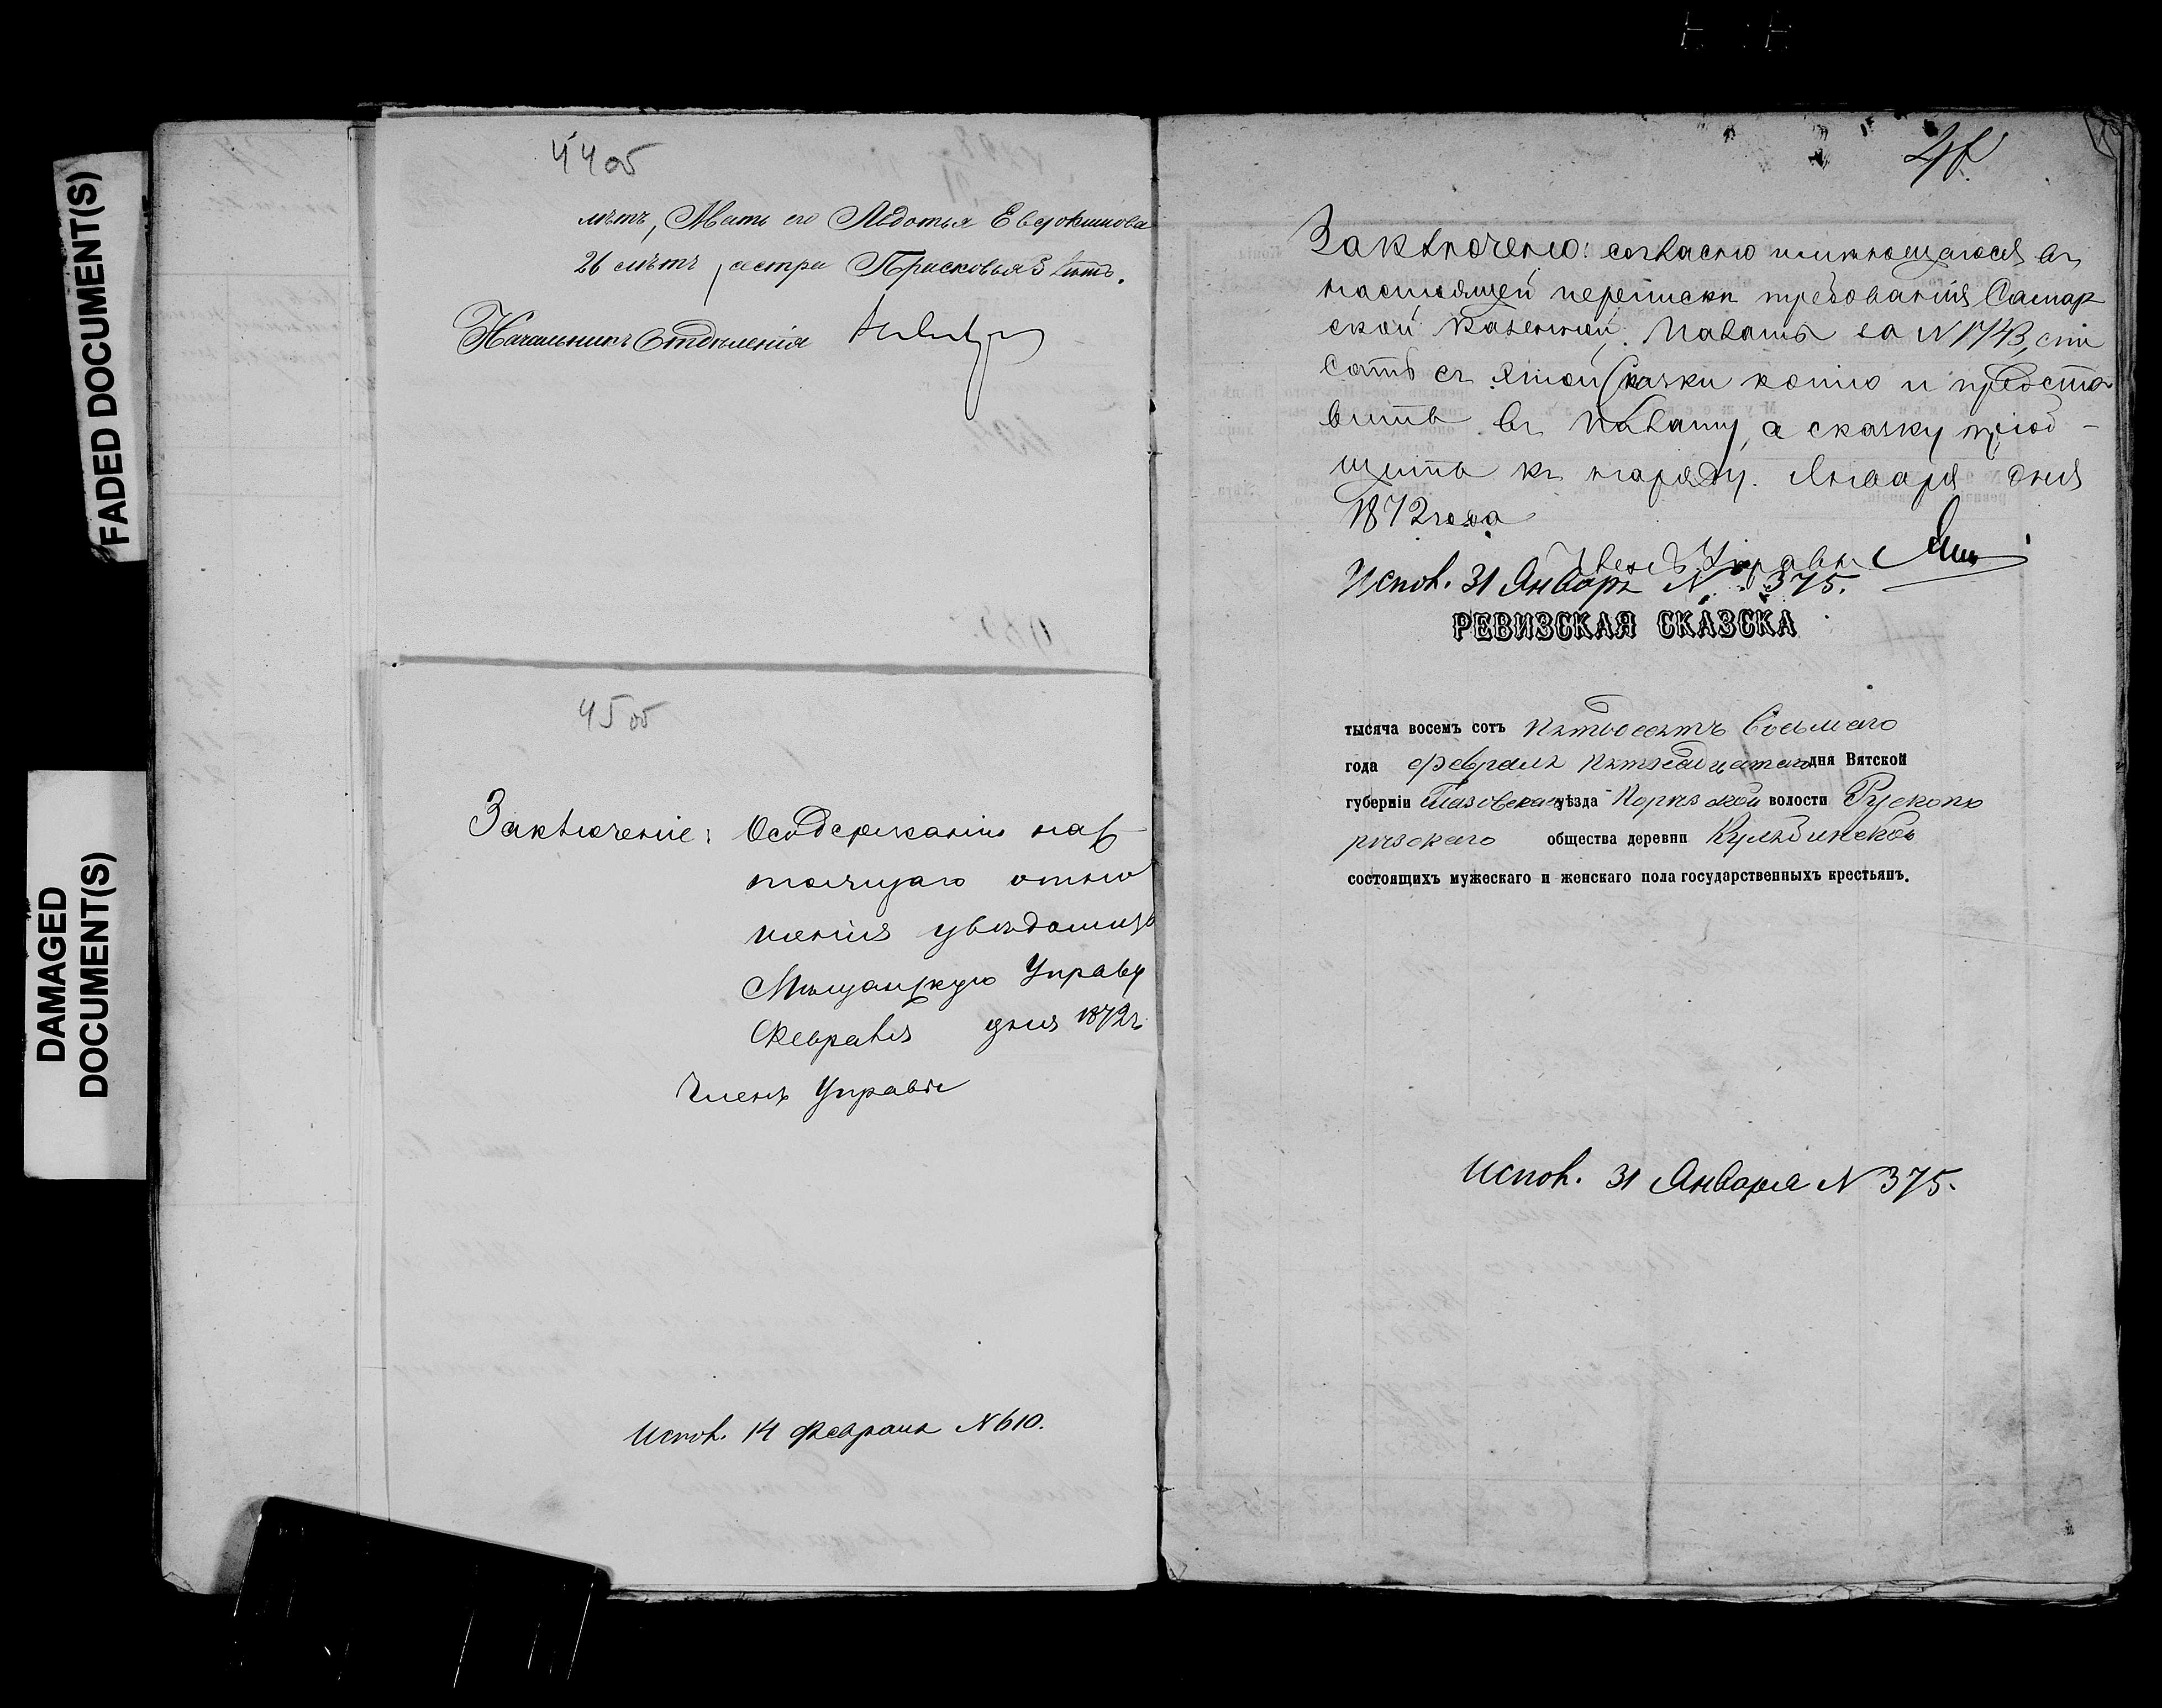 FADED DOCUMENT(S)
DAMAGED
DOCUMENT(S)
44об
лѣтъ, Мать его Авдотья Евдокимова
26 лѣтъ, сестра Прасковья 3 лѣтъ.
Начальникъ Отдѣленія
45об
Заключеніе: О содержаніи нас
тоящаго отно
шенія увѣдомить
Мѣщанскую Управу
Февраля дня 1872г.
Членъ Управы
Испол. 14 Февраля N 610.
Заключено: согласно имѣющагося въ
настоящей перепискѣ требованія Самар
ской Казенной Палаты за N 1743, спи
сать съ этой Сказки копію и предста
вить въ Палату, а сказку пріоб-
щить къ наряду. Января дня
1872 года
Членъ Управы
Испол. 31 Января N 375.
РЕВИЗСКАЯ СКАЗСКА
тысяча восемъ сотъ пятьдесятъ Восьмаго
года Февраля пятнадцатаго дня Вятской
губерніи Глазовскаго уѣзда Порѣзской волости Рускопо
рѣзскаго общества деревни
состоящихъ мужескаго и женскаго пола государственныхъ крестьянъ.
Испол. 31 Января N 375.